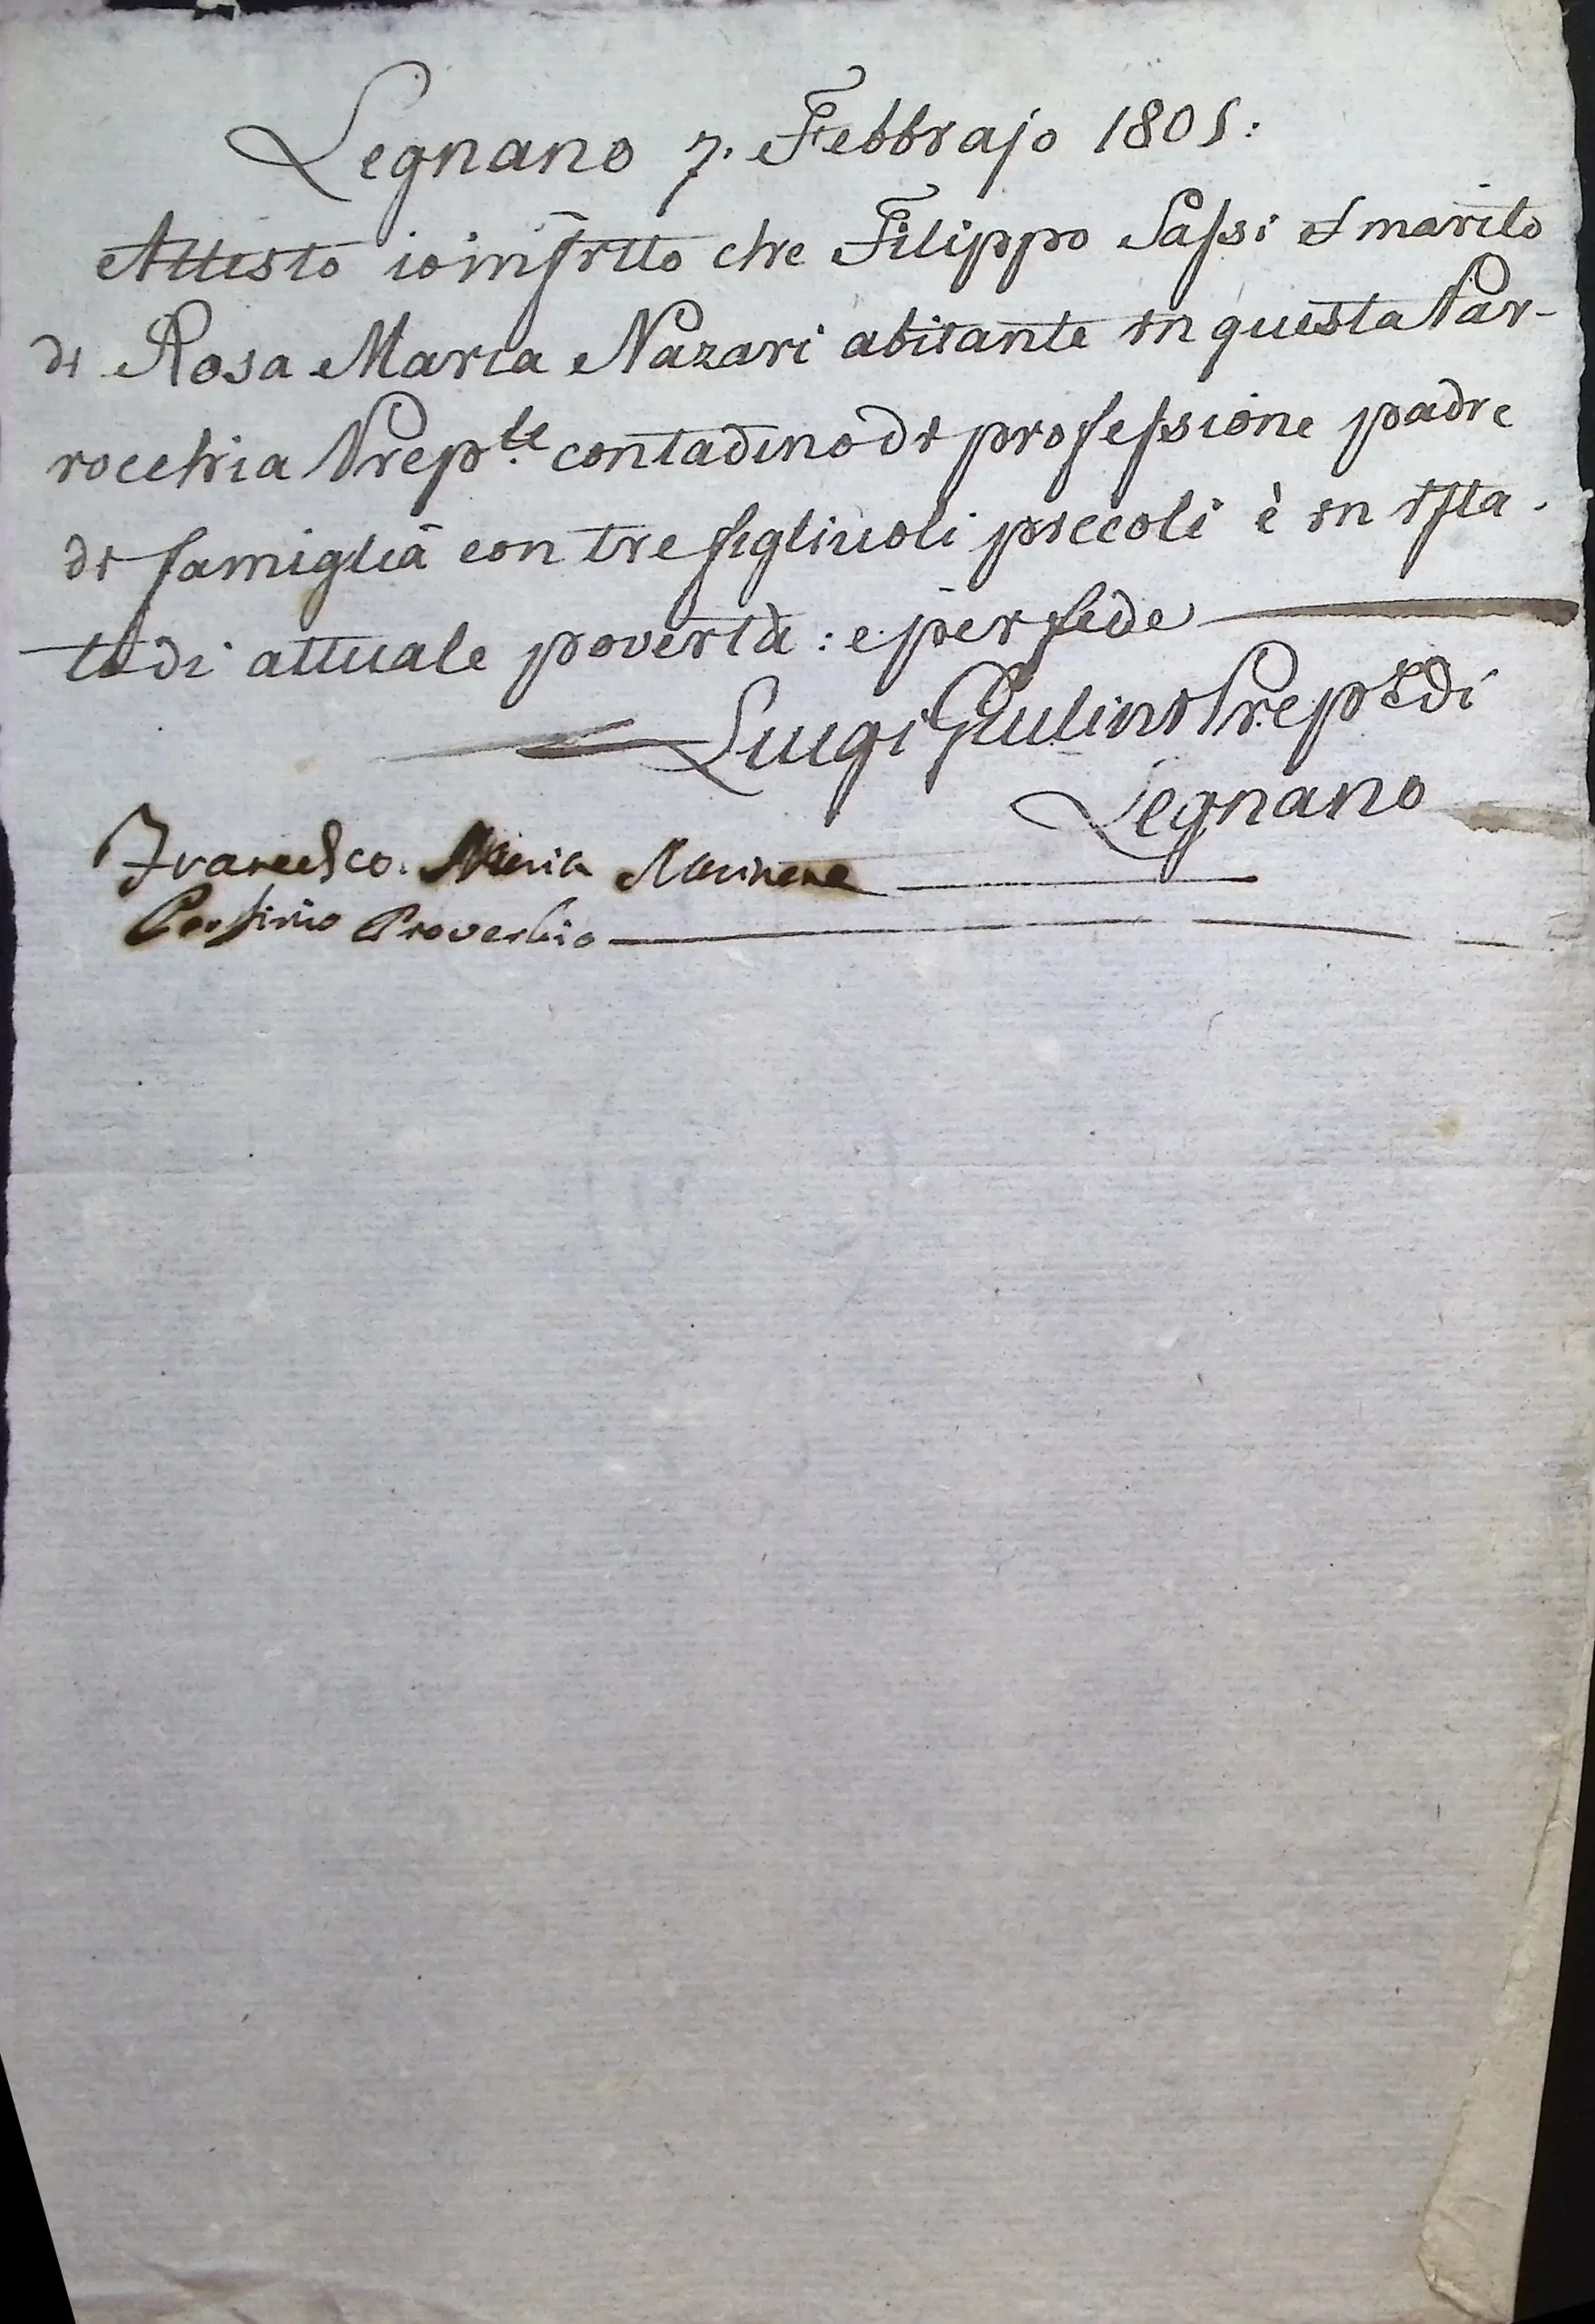 Legnano 7. Febbrajo 1801:
Attesto io infrtto che Filippo Sassi è marito
di Rosa Maria Nazari abitante in questa Par-
rocchia Prep.le contadino di professione padre
di famiglia con tre figliuoli piccoli è in ista-
to di attuale povertà: e per fede
Luigi Giulini Prep.to di
Legnano
Francesco Maria
Proverbio